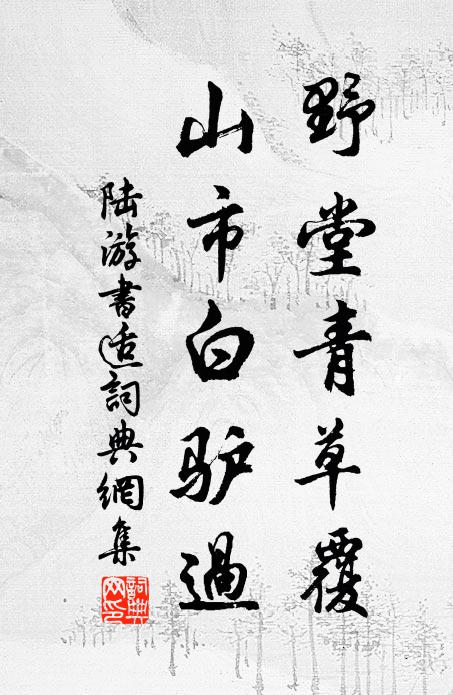 野堂青草覆
山市白驴過
陆游書适詞典網集
詞典
网印